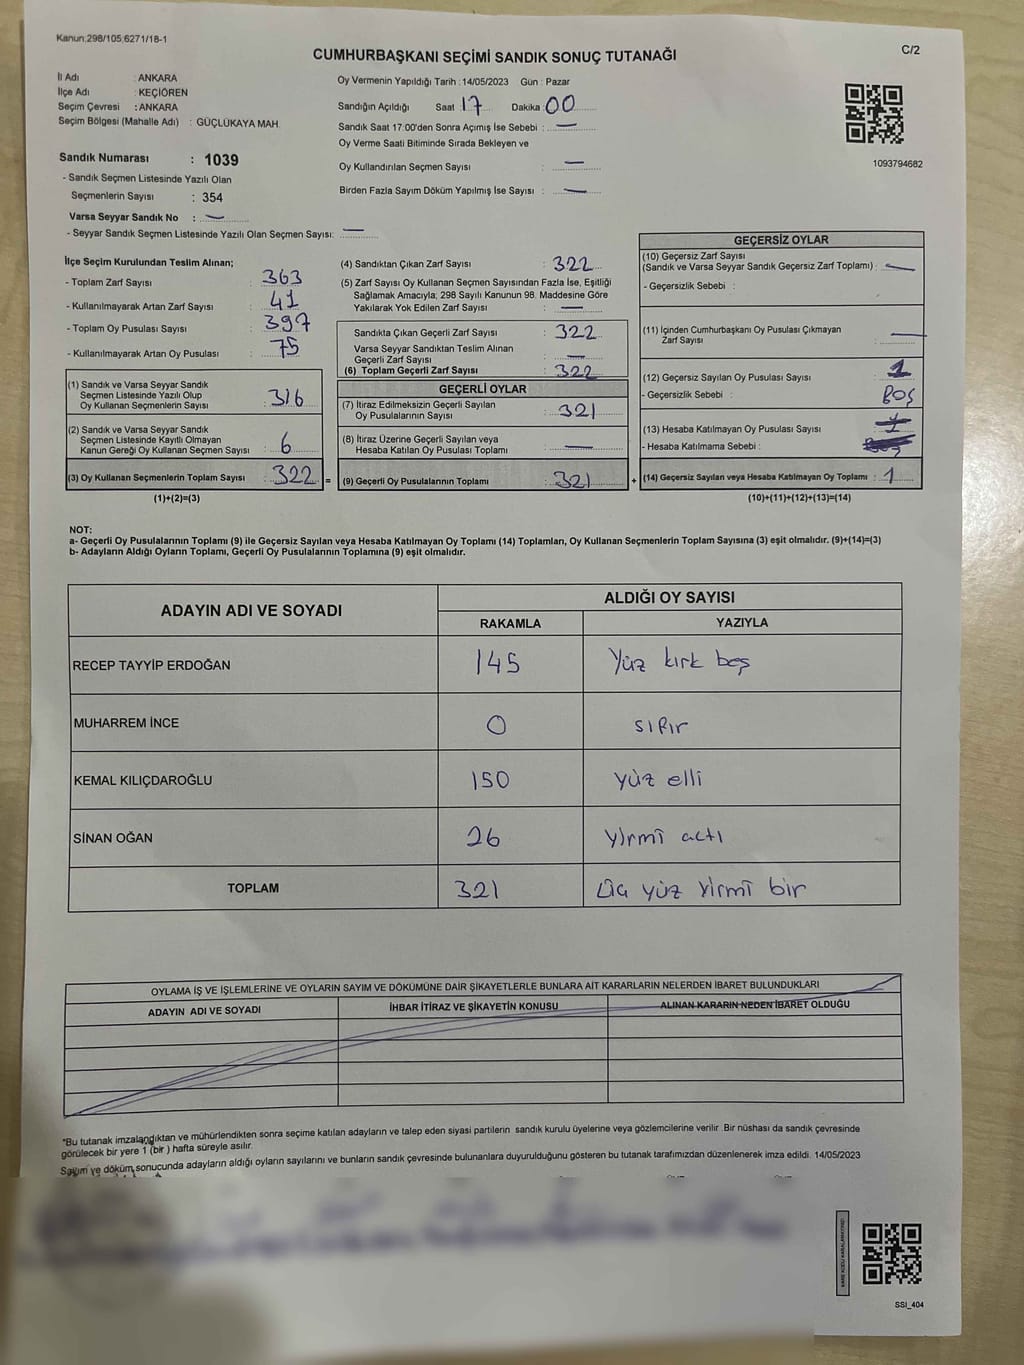 Kanun:298/105;6271/18-1
C/2
CUMHURBAŞKANI SEÇİMİ SANDIK SONUÇ TUTANAĞI
İl Adı : ANKARA
İlçe Adı : KEÇİÖREN
Seçim Çevresi : ANKARA
Seçim Bölgesi (Mahalle Adı) : GÜÇLÜKAYA MAH.
Oy Vermenin Yapıldığı Tarih : 14/05/2023 Gün : Pazar
Sandığın Açıldığı Saat : 17 Dakika : 00
Sandık Saat 17:00'den Sonra Açımış İse Sebebi : —
Oy Verme Saati Bitiminde Sırada Bekleyen ve
Oy Kullandırılan Seçmen Sayısı : —
Birden Fazla Sayım Döküm Yapılmış İse Sayısı : —
1093794682
Sandık Numarası : 1039
- Sandık Seçmen Listesinde Yazılı Olan
Seçmenlerin Sayısı : 354
Varsa Seyyar Sandık No : —
- Seyyar Sandık Seçmen Listesinde Yazılı Olan Seçmen Sayısı: —
İlçe Seçim Kurulundan Teslim Alınan;
- Toplam Zarf Sayısı : 363
- Kullanılmayarak Artan Zarf Sayısı : 41
- Toplam Oy Pusulası Sayısı : 397
- Kullanılmayarak Artan Oy Pusulası : 75
(1) Sandık ve Varsa Seyyar Sandık
Seçmen Listesinde Yazılı Olup
Oy Kullanan Seçmenlerin Sayısı : 316
(2) Sandık ve Varsa Seyyar Sandık
Seçmen Listesinde Kayıtlı Olmayan
Kanun Gereği Oy Kullanan Seçmen Sayısı : 6
(3) Oy Kullanan Seçmenlerin Toplam Sayısı : 322 =
(1)+(2)=(3)
(4) Sandıktan Çıkan Zarf Sayısı : 322
(5) Zarf Sayısı Oy Kullanan Seçmen Sayısından Fazla İse, Eşitliği
Sağlamak Amacıyla; 298 Sayılı Kanunun 98. Maddesine Göre
Yakılarak Yok Edilen Zarf Sayısı : —
Sandıkta Çıkan Geçerli Zarf Sayısı : 322
Varsa Seyyar Sandıktan Teslim Alınan
Geçerli Zarf Sayısı : —
(6) Toplam Geçerli Zarf Sayısı : 322
GEÇERLİ OYLAR
(7) İtiraz Edilmeksizin Geçerli Sayılan
Oy Pusulalarının Sayısı : 321
(8) İtiraz Üzerine Geçerli Sayılan veya
Hesaba Katılan Oy Pusulası Toplamı : —
(9) Geçerli Oy Pusulalarının Toplamı : 321 +
GEÇERSİZ OYLAR
(10) Geçersiz Zarf Sayısı
(Sandık ve Varsa Seyyar Sandık Geçersiz Zarf Toplamı) : —
- Geçersizlik Sebebi :
(11) İçinden Cumhurbaşkanı Oy Pusulası Çıkmayan
Zarf Sayısı : —
(12) Geçersiz Sayılan Oy Pusulası Sayısı : 1
- Geçersizlik Sebebi : BOŞ
(13) Hesaba Katılmayan Oy Pusulası Sayısı :
- Hesaba Katılmama Sebebi :
(14) Geçersiz Sayılan veya Hesaba Katılmayan Oy Toplamı : 1
(10)+(11)+(12)+(13)=(14)
NOT:
a- Geçerli Oy Pusulalarının Toplamı (9) ile Geçersiz Sayılan veya Hesaba Katılmayan Oy Toplamı (14) Toplamları, Oy Kullanan Seçmenlerin Toplam Sayısına (3) eşit olmalıdır. (9)+(14)=(3)
b- Adayların Aldığı Oyların Toplamı, Geçerli Oy Pusulalarının Toplamına (9) eşit olmalıdır.
ADAYIN ADI VE SOYADI
ALDIĞI OY SAYISI
RAKAMLA YAZIYLA
RECEP TAYYİP ERDOĞAN 145 Yüz kırk beş
MUHARREM İNCE 0 sıfır
KEMAL KILIÇDAROĞLU 150 yüz elli
SİNAN OĞAN 26 yirmi actı
TOPLAM 321 üç yüz yirmi bir
OYLAMA İŞ VE İŞLEMLERİNE VE OYLARIN SAYIM VE DÖKÜMÜNE DAİR ŞİKAYETLERLE BUNLARA AİT KARARLARIN NELERDEN İBARET BULUNDUKLARI
ADAYIN ADI VE SOYADI İHBAR İTİRAZ VE ŞİKAYETİN KONUSU ALINAN KARARIN NEDEN İBARET OLDUĞU
*Bu tutanak imzalandıktan ve mühürlendikten sonra seçime katılan adayların ve talep eden siyasi partilerin sandık kurulu üyelerine veya gözlemcilerine verilir. Bir nüshası da sandık çevresinde
görülecek bir yere 1 (bir ) hafta süreyle asılır.
Sayım ve döküm sonucunda adayların aldığı oyların sayılarını ve bunların sandık çevresinde bulunanlara duyurulduğunu gösteren bu tutanak tarafımızdan düzenlenerek imza edildi. 14/05/2023
SSI_404